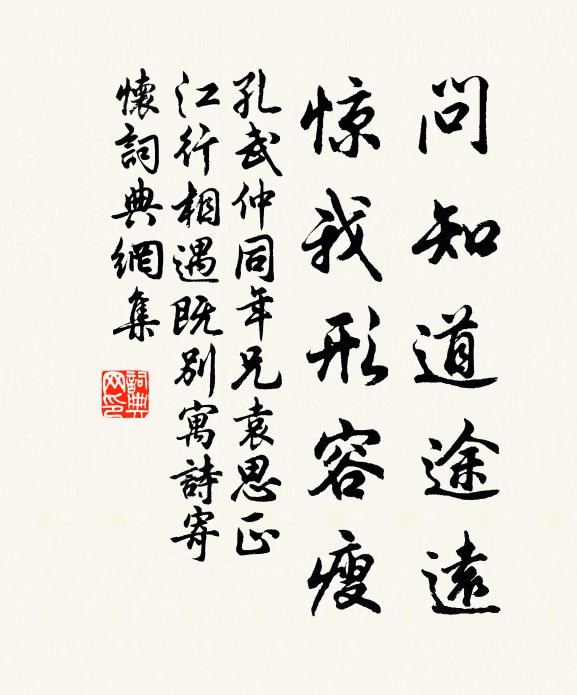 問知道途遠
惊我形容瘦
孔武仲同年兄袁思正
江行相遇既别寓詩寄
懷詞典網集
詞典
网印